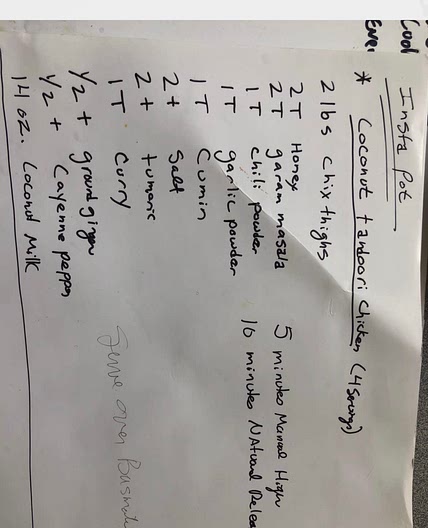 Insta Pot
* Coconut tandoori Chicken (4 servings)
2 lbs chix thighs
2T Honey
2T garam masala
1T chili powder
1T garlic powder
1T Cumin
2t Salt
2t tumeric
1T Curry
1/2 t ground ginger
1/2 t Cayenne pepper
14 oz. Coconut Milk
5 minutes Manual High
10 minutes Natural Relea
Serve over Basmat